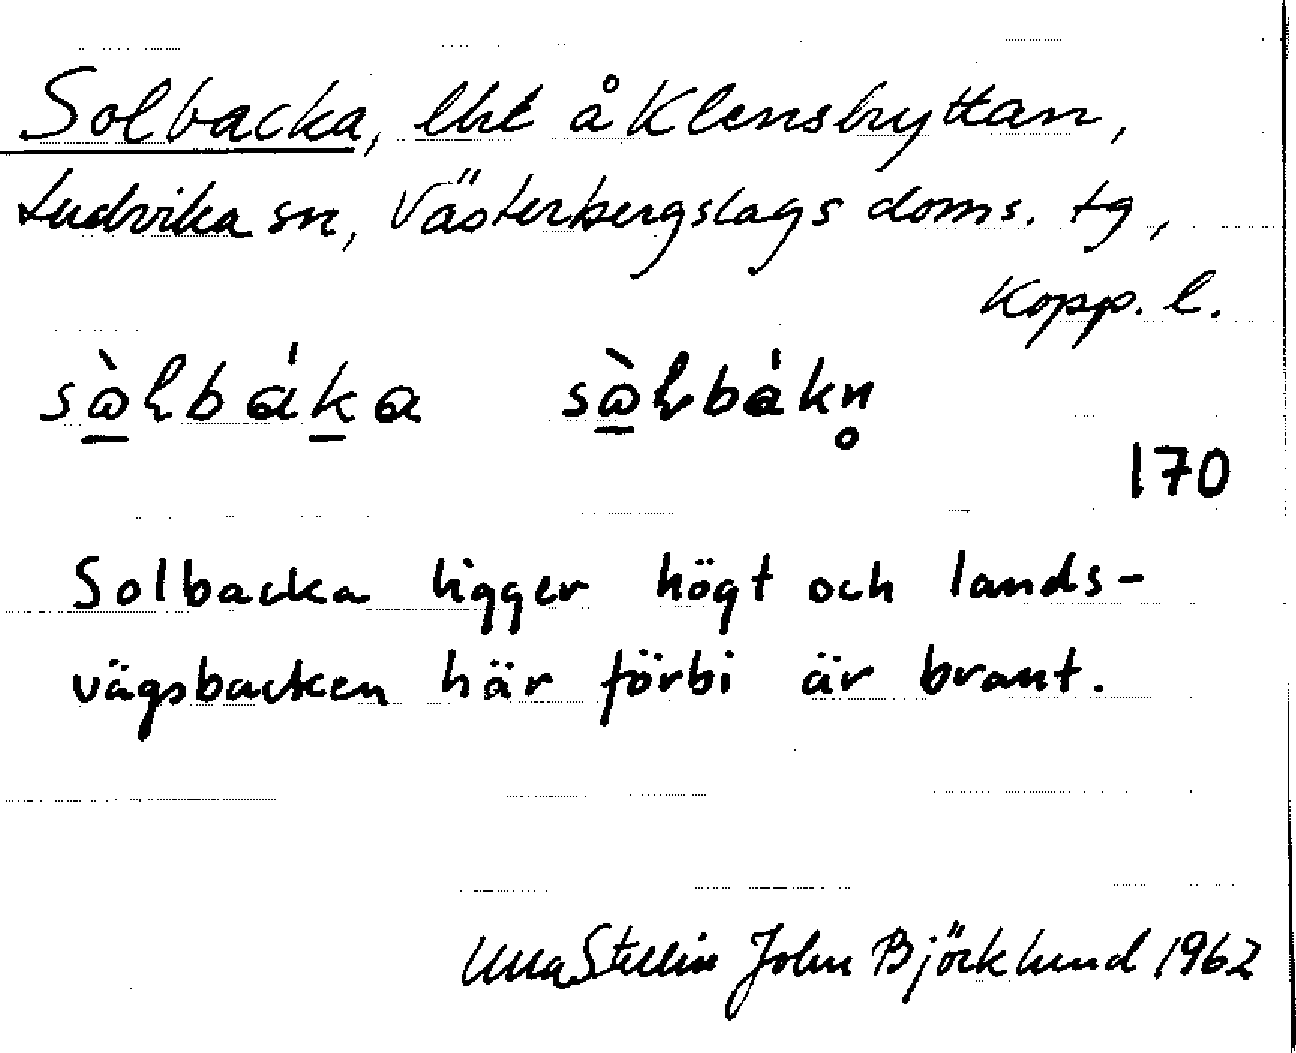 Solbacka, lht å Klenshyttan,
Ludvika sn, Västerbergslags doms. tg,
Kopp. l.
sàlbáka sàlbákn̥
170
Solbacka ligger högt och lands-
vägsbacken här förbi är brant.
Ulla Stellin John Björklund 1962